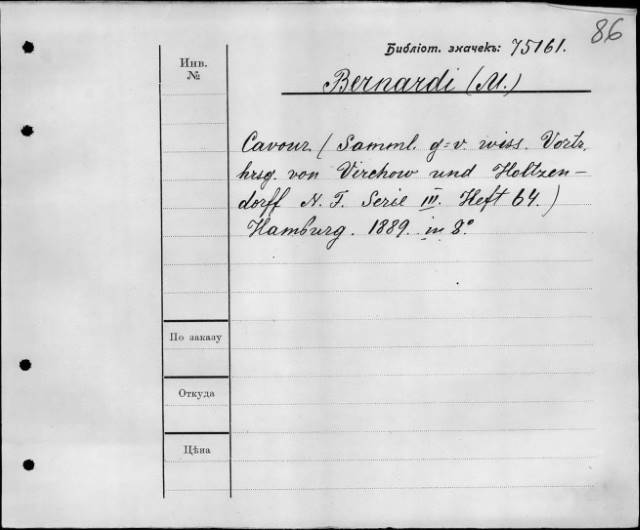 86
Библіот. значекъ: 75161.
Инв.
№
Bernardi (M.)
Cavour (Samml. g=v. wiss. Vortr.
hrsg. von Virchow und Holtzen-
dorff N. F. Serie III. Heft 64.)
Hamburg. 1889. in 8°
По заказу
Откуда
Цѣна